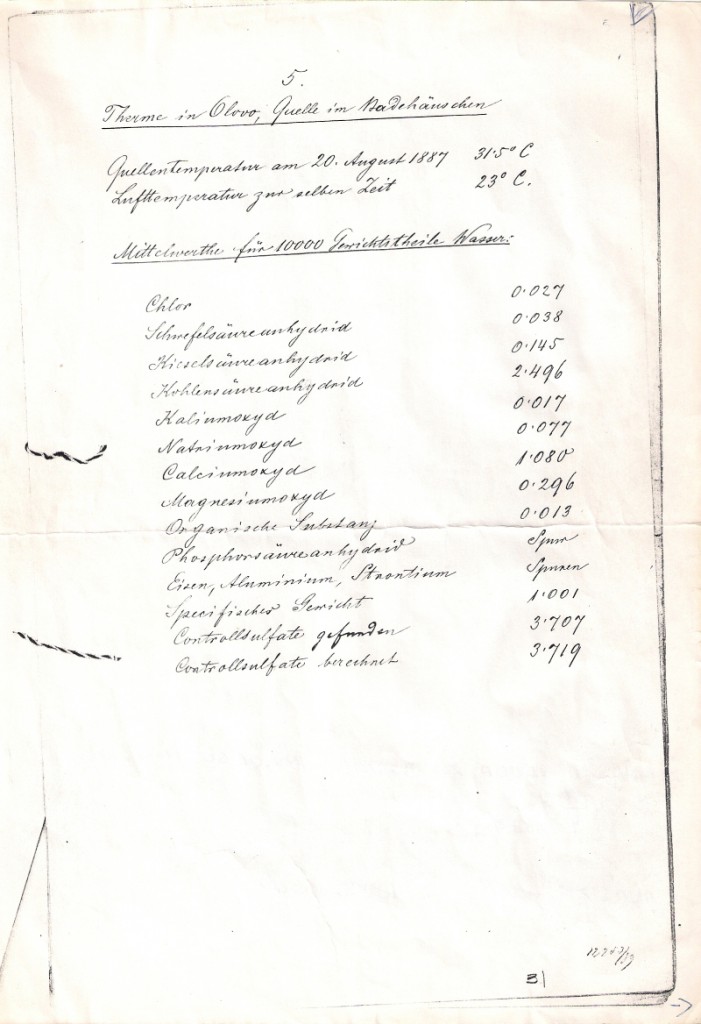 5.
Therme in Olovo, Quelle im Badehäuschen
Quellentemperatur am 20. August 1887 31·5° C
Lufttemperatur zur selben Zeit 23° C.
Mittelwerthe für 10000 Gewichtstheile Wasser:
Chlor 0·027
Schwefelsäureanhydrid 0·038
Kieselsäureanhydrid 0·145
Kohlensäureanhydrid 2·496
Kaliumoxyd 0·017
Natriumoxyd 0·077
Calciumoxyd 1·080
Magnesiumoxyd 0·296
Organische Substanz 0·013
Phosphorsäureanhydrid Spur
Eisen, Aluminium, Strontium Spuren
Specifisches Gewicht 1·001
Controllsulfate gefunden 3·707
Controllsulfate berechnet 3·719
3|